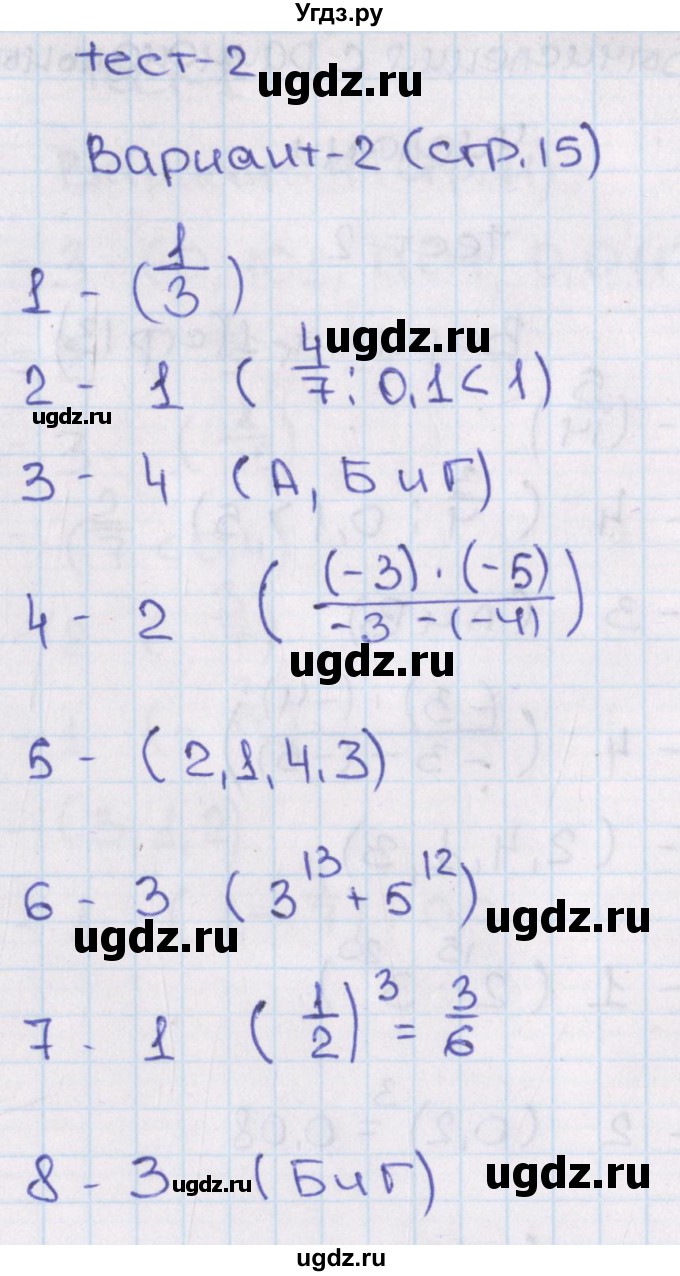 Угдз.ру
тест-2
ugdz.ru
Вариант-2 (стр.15)
1 - (1/3)
ugdz.ru
2 - 1 (4/7 : 0,1 < 1)
ugdz.ru
3 - 4 (А, Б и Г)
4 - 2 ((-3)·(-5)/-3-(-4))
ugdz.ru
5 - (2,1,4,3)
6 - 3 (3^13 + 5^12)
ugdz.ru
ugdz.ru
7 - 1 (1/2)^3 = 3/6
8 - 3 (Б и Г)
ugdz.ru
ugdz.ru
ugdz.ru